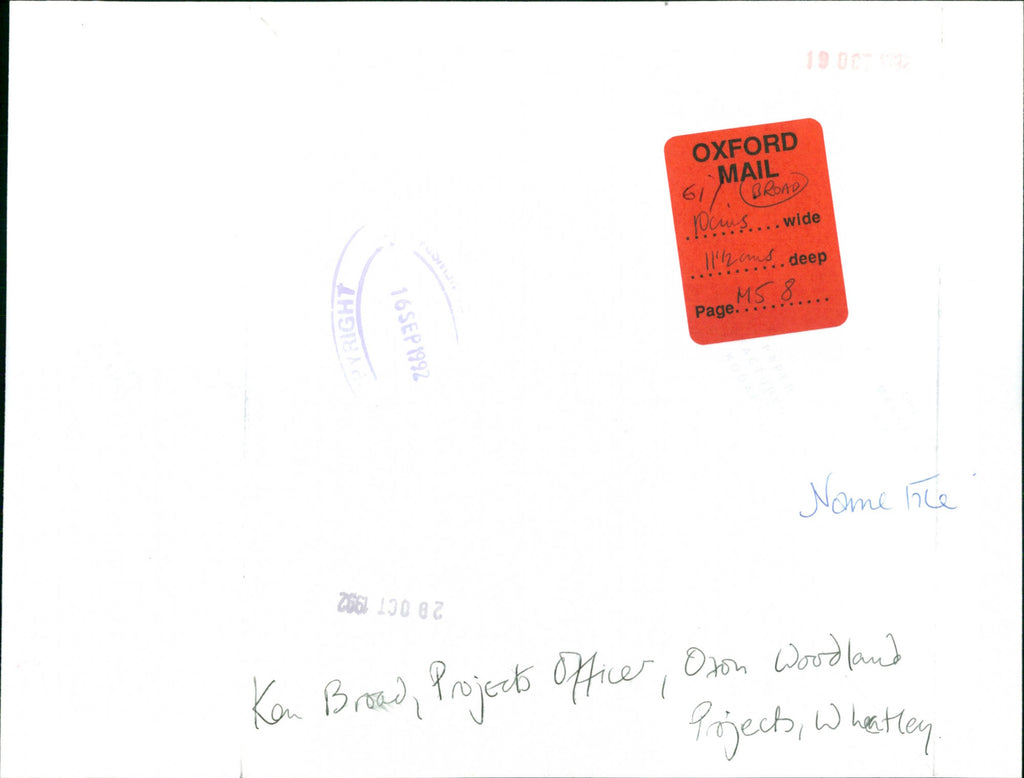 19 OCT 1992
OXFORD
MAIL
61/ BROAD
10cms....wide
11½cms deep
Page MS 8
PYRIGHT
16 SEP 1992
Name File
28 OCT 1992
Ken Broad, Projects Officer, Oxon Woodland
Projects, Wheatley.